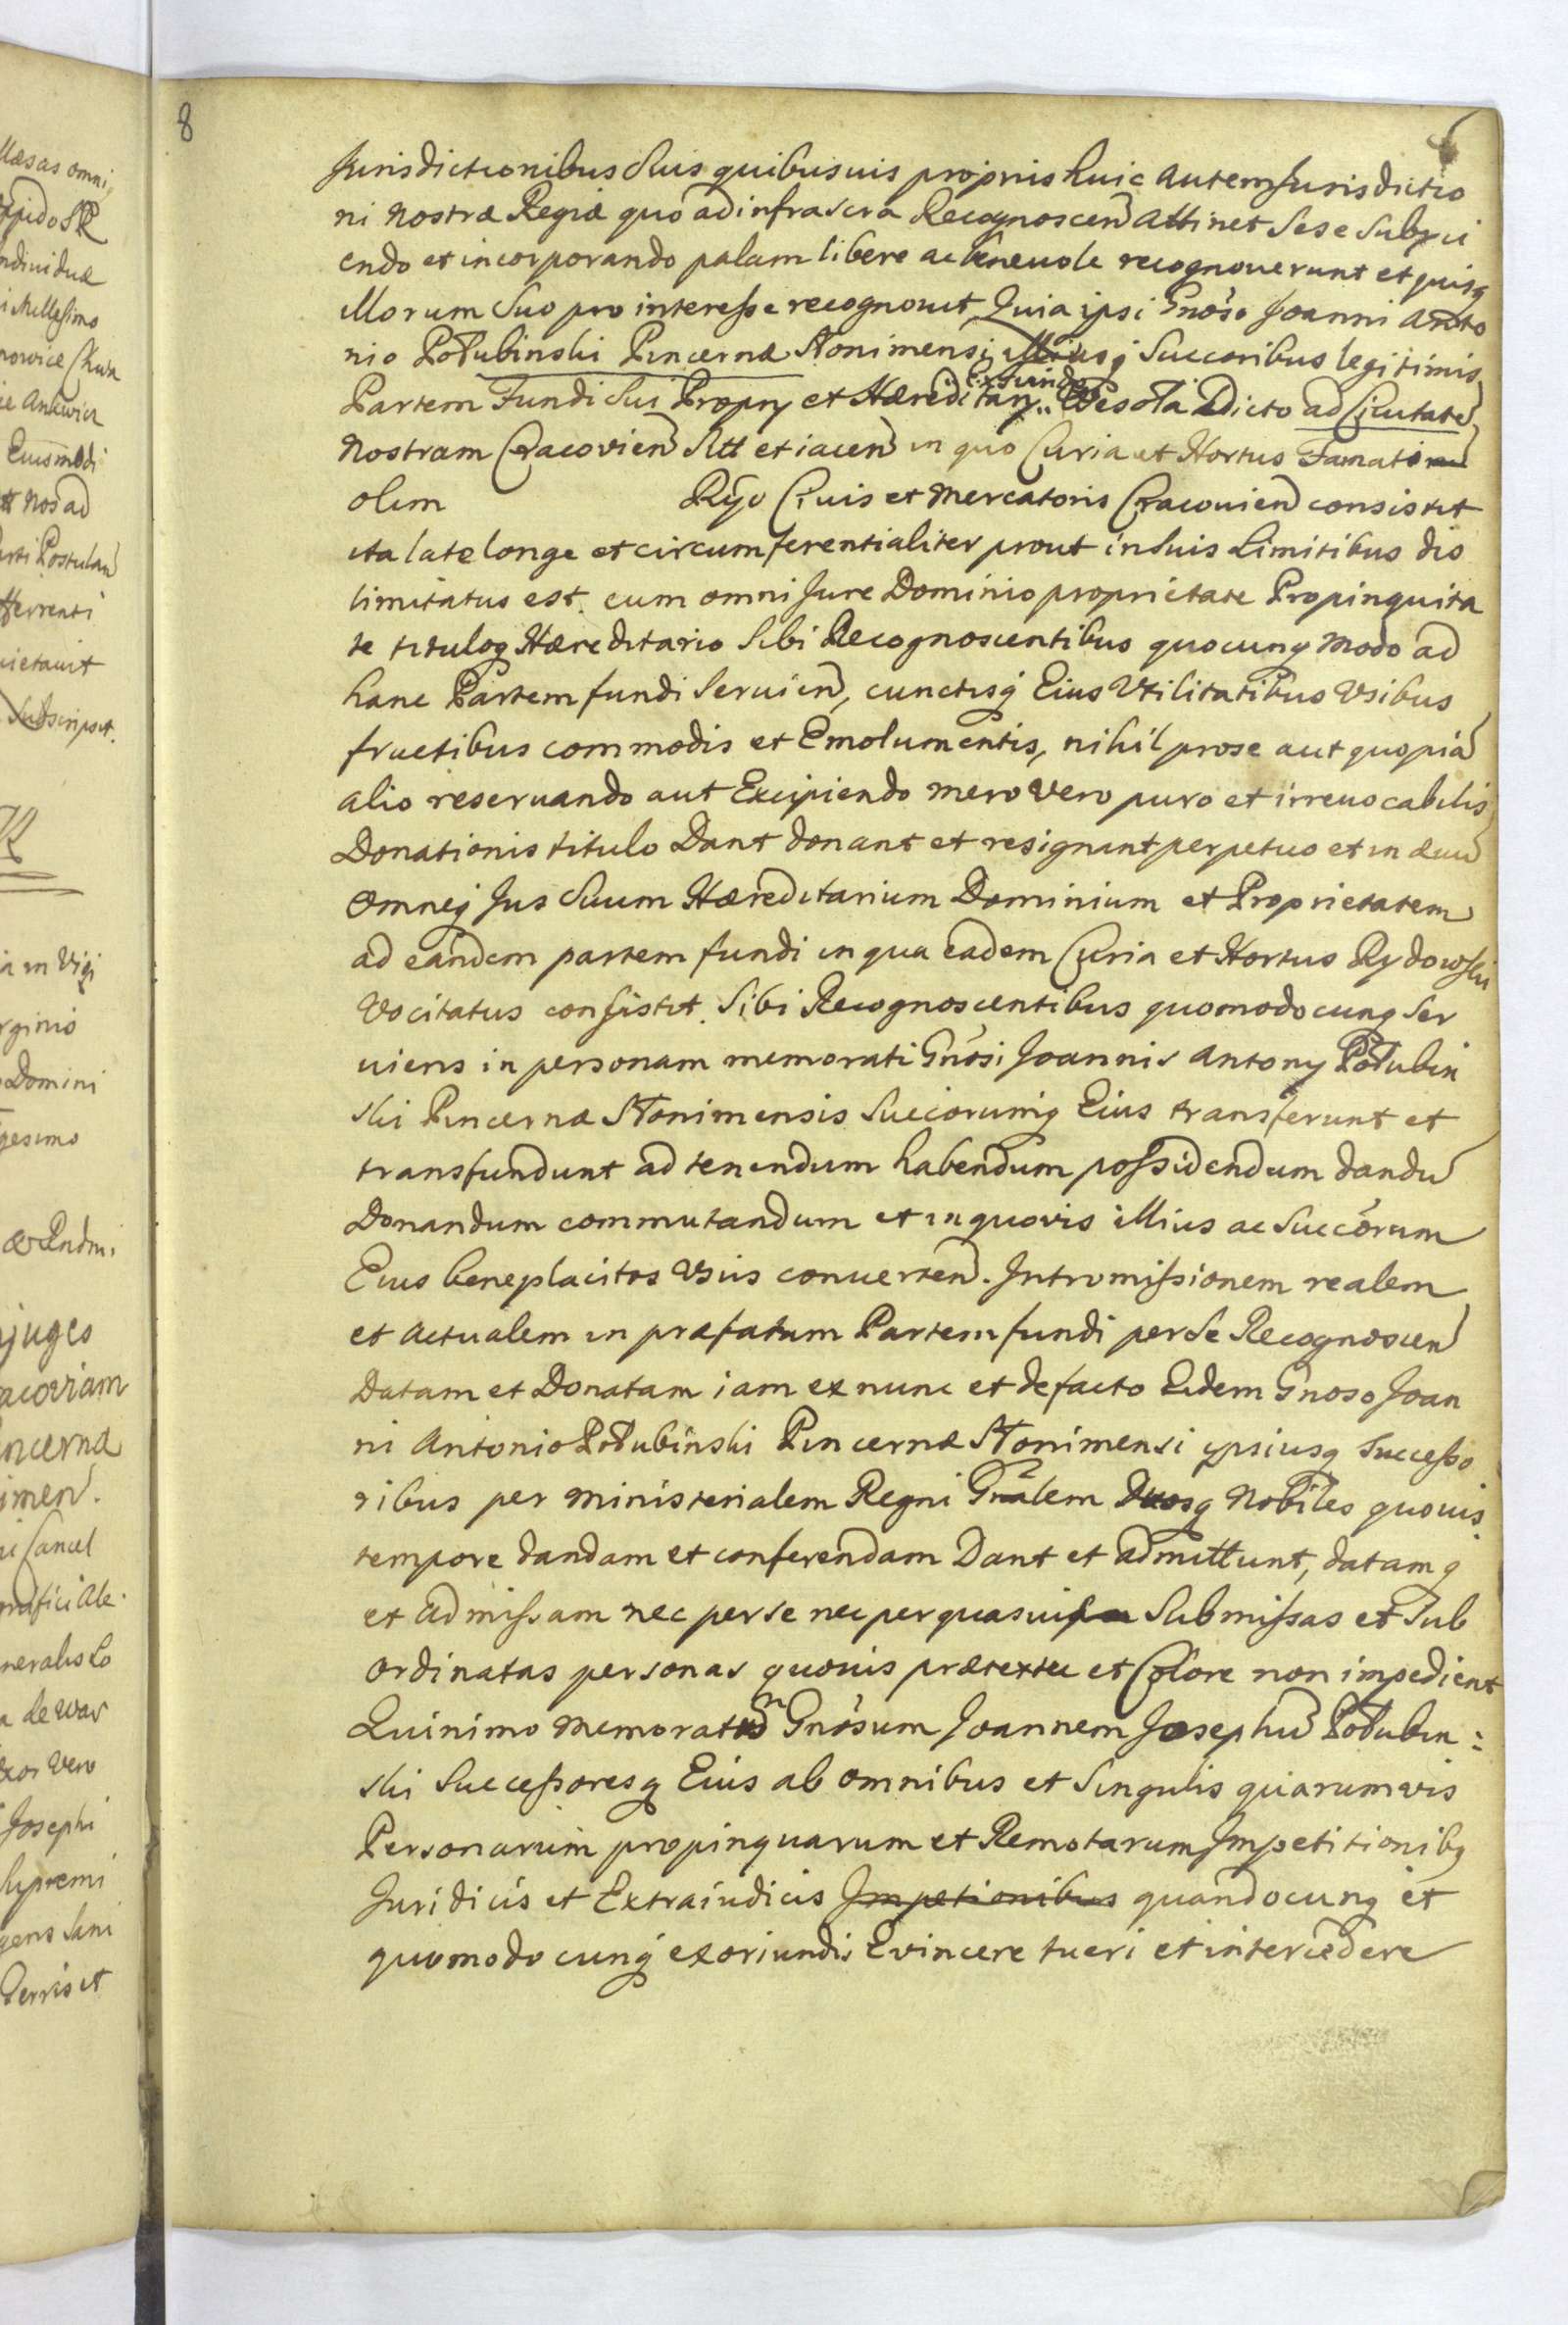 8
Jurisdictionibus Suis quibusuis proprijs huic autem Jurisdictio
ni nostræ Regiæ quo ad infrascra Recognoscen attinet sese Subyci
endo et incorporando palam libere ac beneuole recognouerunt et quisq
illorum Suo pro interesse recognouit Quia ipsi Gnoso Joanni Anto
nio Połubinski Pincernæ Słonimensi illiusq Succoribus legitimis
Partem Fundi Sui Propry et Hæreditary Extruindo Wesoła Dicto ad Ciuitate
nostram Cracovien Sitt et iacen in quo Curia et Hortus Famati
olim Ryo Ciuis et Mercatoris Cracouien consistit
ita late longe et circumferentialiter prout in Suis Limitibus dis
limitatus est. cum omni Jure Dominio proprietate Propinquita
te tituloq Hæreditario Sibi Recognoscentibus quocunq modo ad
hanc Partem fundi Seruien, cunctisq Eius Vtilitatibus Vsibus
fructibus commodis et Emolumentis, nihil pro se aut quopia
alio reseruando aut Excipiendo mero Vero puro et irreuocabilis
Donationis titulo Dant donant et resignant perpetuo et in æuu
Omneq Jus Suum Hæreditarium Dominium et Proprietatem
ad eandem partem fundi in qua eadem Curia et Hortus Rydowski
Vocitatus consistit. Sibi Recognoscentibus quomodocunq Ser
uiens in personam memorati Gnosi Joannis Antony Połubin
ski Pincernæ Słonimensis Succorumq Eius transferunt et
transfundunt ad tenendum habendum possidendum dandu
Donandum commutandum et in quovis illius ac Succorum
Eius beneplacitos Vsus conuerten. Intromissionem realem
et actualem in præfatam Partem fundi per Se Recognoscen
Datam et Donatam iam ex nunc et de facto Eidem Gnoso Joan
ni Antonio Połubinski Pincernæ Słonimensi ipsiusq Successo
ribus per ministerialem Regni Gnalem Duosq Nobiles quouis
tempore dandam et conferendam Dant et admittunt, datamq
et admissam nec per se nec per quasuis Submissas et Sub
ordinatas personas quouis prætextu et Colore non impedient
Quinimo memoratum Gnosum Joannem Josephu Połubin:
ski Successoresq Eius ab omnibus et Singulis quarumvis
Personarum propinquarum et Remotarum Impetitionibq
Juridicis et Extraiudicis Impetionibus quandocunq et
quomodocunq exoriundis Evincere tueri et intercedere